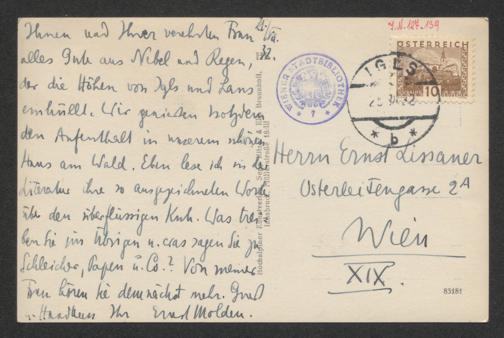 21./VII.
32.
Ihnen und Ihrer verehrten Frau
alles Gute aus Nebel und Regen,
der die Höhen von Igls und Lans
einhüllt. Wir genießen trotzdem
den Aufenthalt in unserem schönen
Haus am Wald. Eben lese ich in der
Literatur ihre so ausgezeichneten Worte
über den überflüssigen Krieg. Was trei-
ben Sie im Übrigen u. was sagen Sie zu
Schleicher, Papen u. Co.? Von meiner
Frau hören Sie demnächst mehr. Gruß
u. Handkuss Ihr Ernst Molden.
WIENER STADTBIBLIOTHEK
* 7 *
I.N. 127.139
ÖSTERREICH
10
IGLS
* b *
Herrn Ernst Lissauer
Osterleitengasse 2A
Wien
XIX.
83181